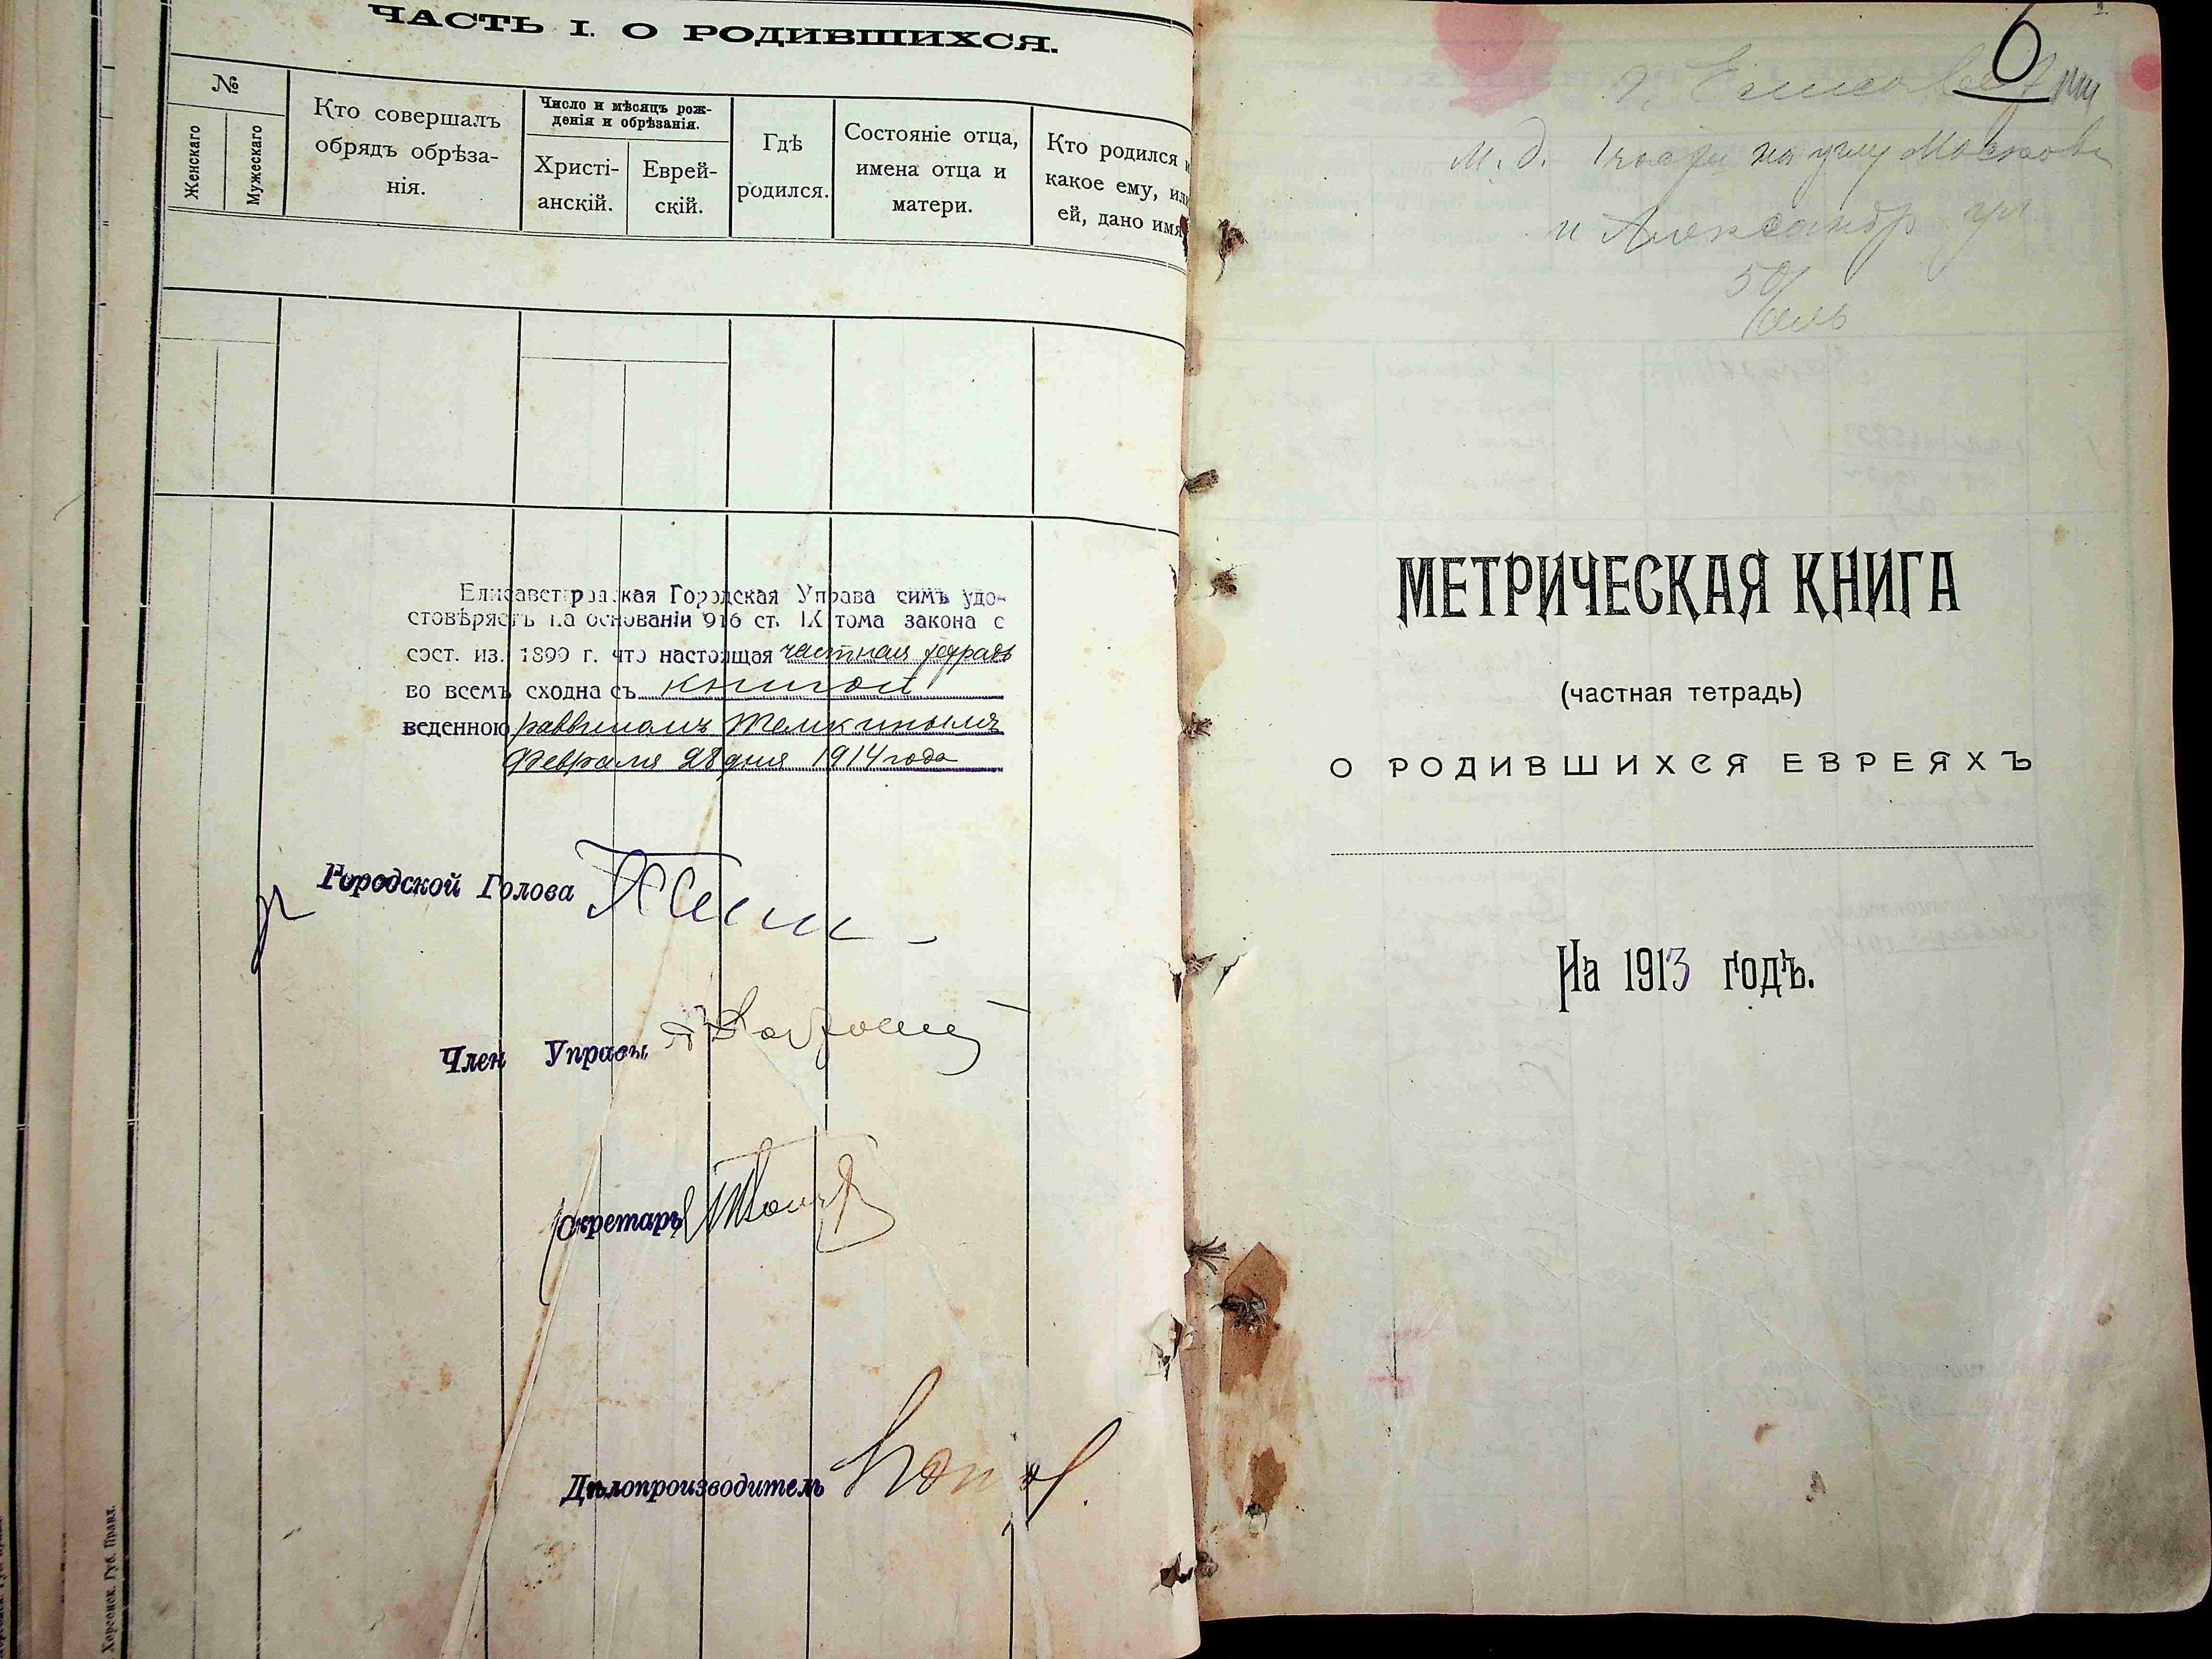 ЧАСТЬ I. О РОДИВШИХСЯ.
№
Женскаго
Мужескаго
Кто совершалъ
обрядъ обрѣза-
нія.
Число и мѣсяцъ рож-
денія и обрѣзанія.
Христі-
анскій.
Еврей-
скій.
Гдѣ
родился.
Состояніе отца,
имена отца и
матери.
Кто родился и
какое ему, или
ей, дано имя
Елисаветградская Городская Управа симъ удо-
стовѣряетъ на основаніи 916 ст. IX тома закона с
сост. из. 1899 г. что настоящая частная тетрадь
во всемъ сходна съ книгой
веденною раввиномъ Темкинымъ
Февраля 28 дня 1914 года
Городской Голова
Член Управы
Секретарь
Дѣлопроизводитель
Херсонск. Губ. Правл.
6
г. Елисавет
м. д. на углу Московск
и Александр ул
50
МЕТРИЧЕСКАЯ КНИГА
(частная тетрадь)
О РОДИВШИХСЯ ЕВРЕЯХЪ
На 1913 годъ.